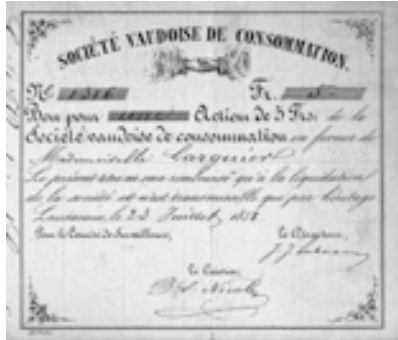 SOCIÉTÉ VAUDOISE DE CONSOMMATION.
No 1316 Fr. 5
Bon pour une Action de 5 Frs. de la
Société vaudoise de consommation en faveur de
Mademoiselle Larguier
Le présent bon ne sera remboursé qu'à la liquidation
de la société et n'est transmissible que par héritage
Lausanne, le 23 Juillet, 1858
Pour le Comité de Surveillance, Le Directeur,
Le Caissier,